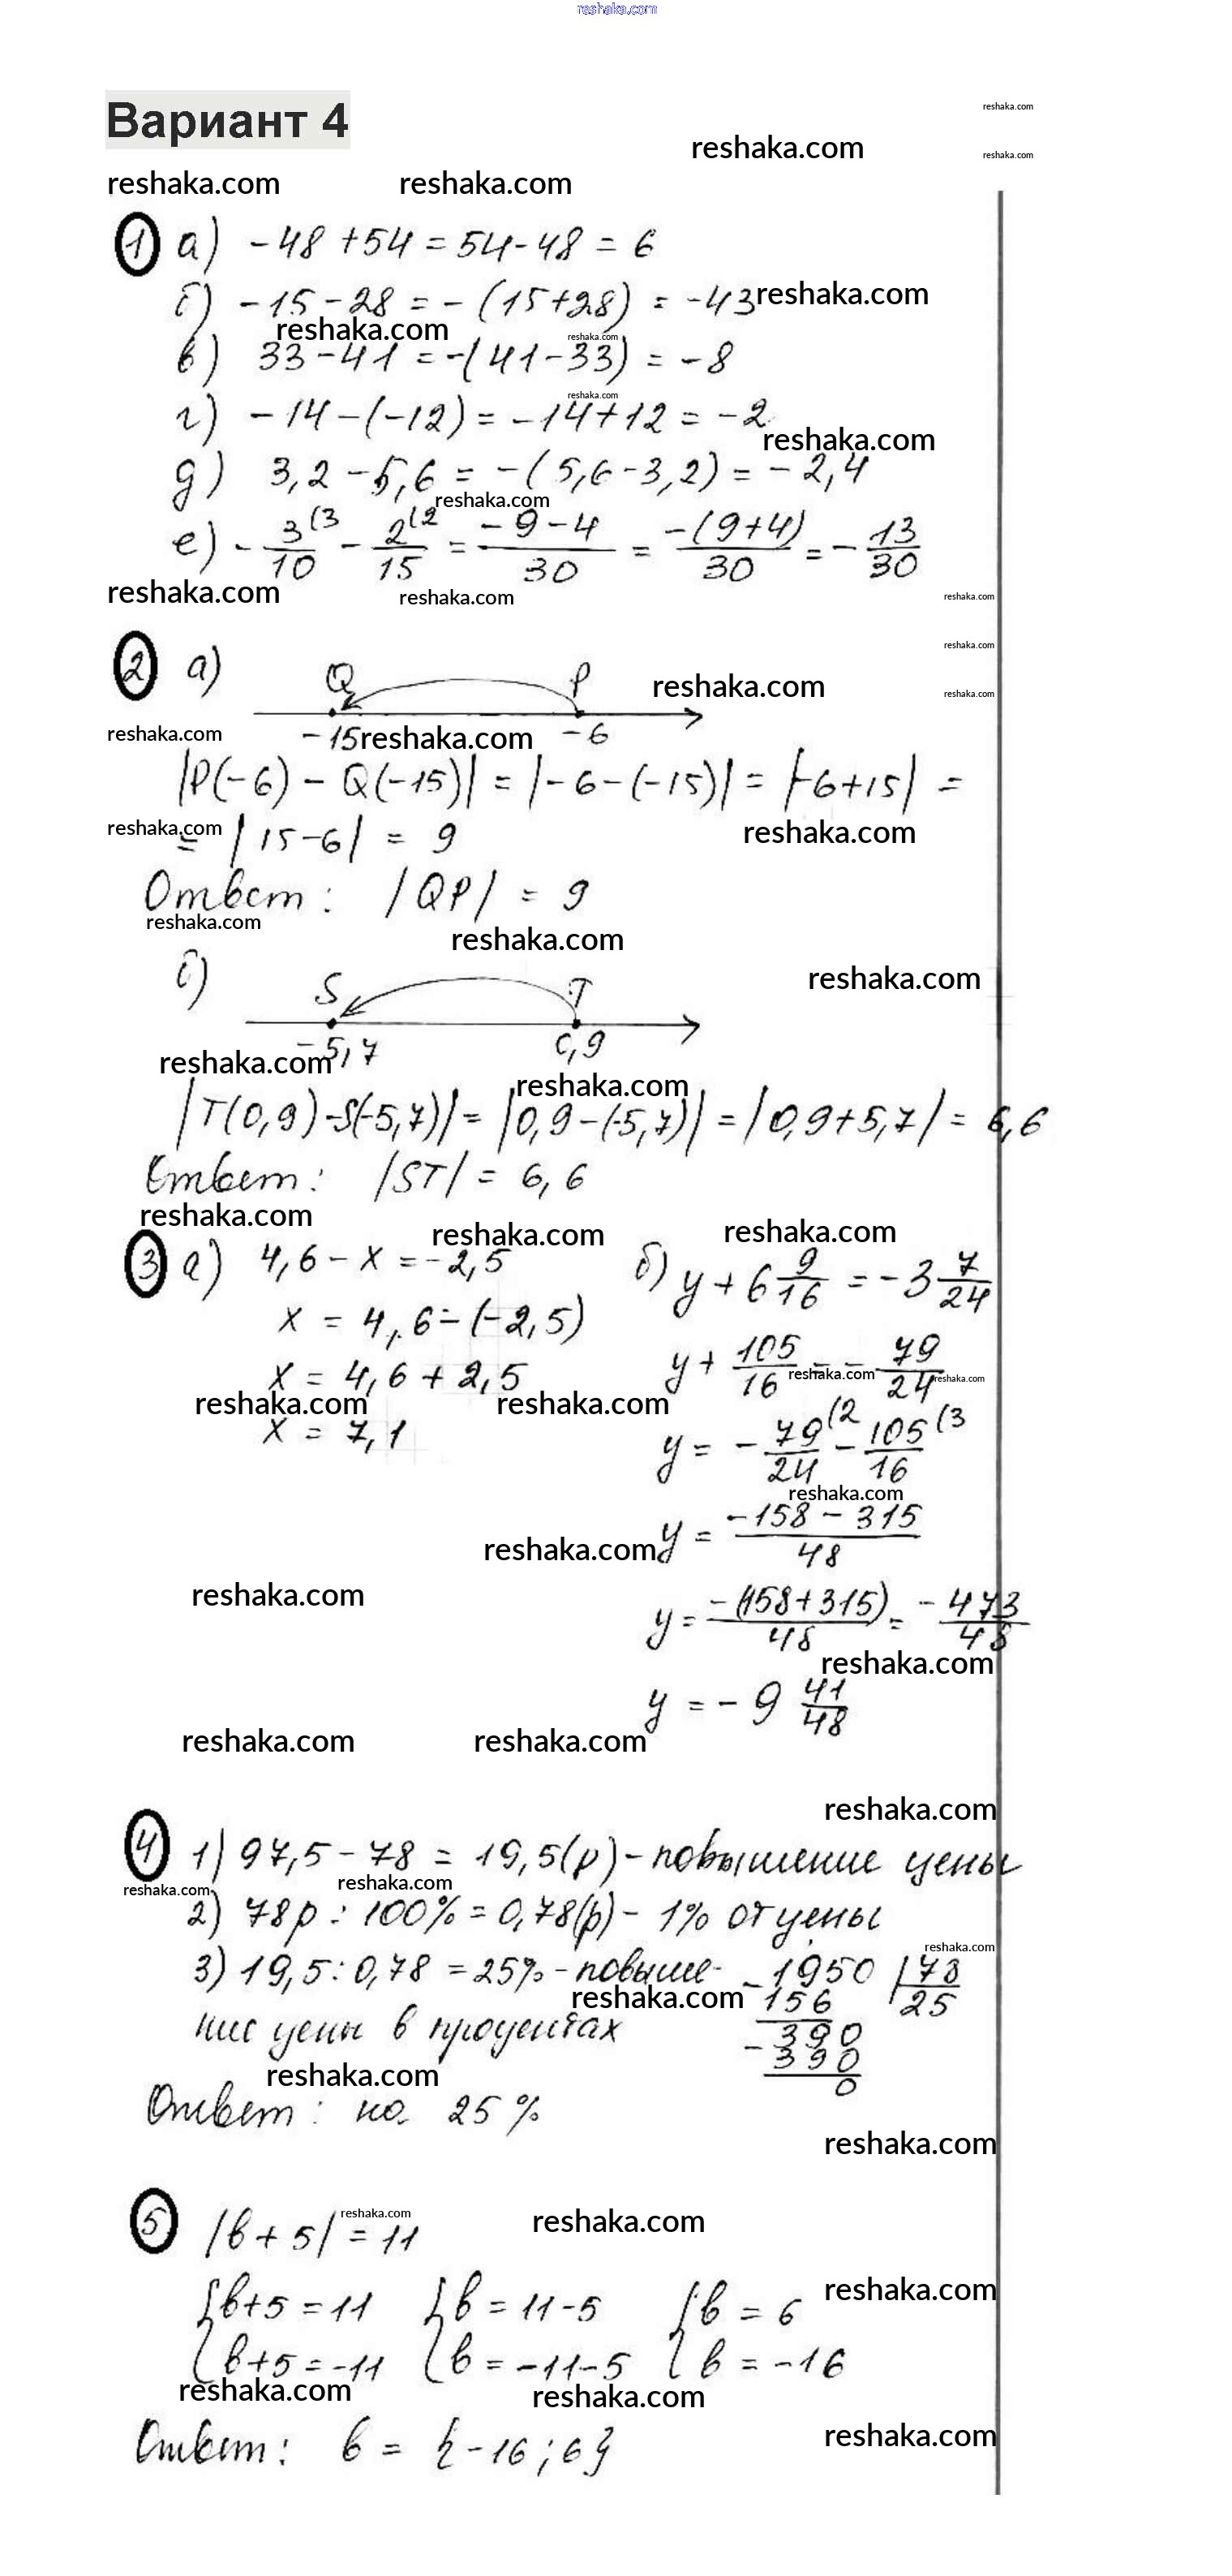 reshaka.com
Вариант 4
reshaka.com
reshaka.com
reshaka.com
reshaka.com reshaka.com
1 а) -48+54=54-48=6
б) -15-28=-(15+28)=-43 reshaka.com
reshaka.com
reshaka.com
в) 33-41=-(41-33)=-8
reshaka.com
г) -14-(-12)=-14+12=-2
reshaka.com
д) 3,2-5,6=-(5,6-3,2)=-2,4
reshaka.com
е) -3(3/10-2(2/15=-9-4/30=-(9+4)/30=-13/30
reshaka.com reshaka.com reshaka.com
reshaka.com
2 а) Q P
reshaka.com reshaka.com
reshaka.com -15 reshaka.com -6
|P(-6)-Q(-15)|=|-6-(-15)|=|-6+15|=
reshaka.com reshaka.com
=|15-6|=9
Ответ: |QP|=9
reshaka.com
reshaka.com
б) S T
reshaka.com
-5,7 0,9
reshaka.com
reshaka.com
|T(0,9)-S(-5,7)|=|0,9-(-5,7)|=|0,9+5,7|=6,6
Ответ: |ST|=6,6
reshaka.com reshaka.com reshaka.com
3 а) 4,6-x=-2,5
x=4,6-(-2,5)
x=4,6+2,5
reshaka.com reshaka.com
x=7,1
б) y+6 9/16=-3 7/24
y+105/16=-79/24
reshaka.com reshaka.com
y=-79(2/24-105(3/16
reshaka.com
y=-158-315/48
reshaka.com
reshaka.com
y=-(158+315)/48=-473/48
reshaka.com
y=-9 41/48
reshaka.com reshaka.com
reshaka.com
4 1) 97,5-78=19,5(р)-повышение цены
reshaka.com reshaka.com
2) 78р:100%=0,78(р)-1% от цены
reshaka.com
3) 19,5:0,78=25%-повыше-
reshaka.com
ние цены в процентах
-1950 |78
156 25
390
-390
0
reshaka.com
Ответ: на 25%
reshaka.com
5 |в+5|=11
reshaka.com reshaka.com
{в+5=11 {в=11-5 {в=6
reshaka.com
в+5=-11 в=-11-5 в=-16
reshaka.com reshaka.com
reshaka.com
Ответ: в={-16;6}